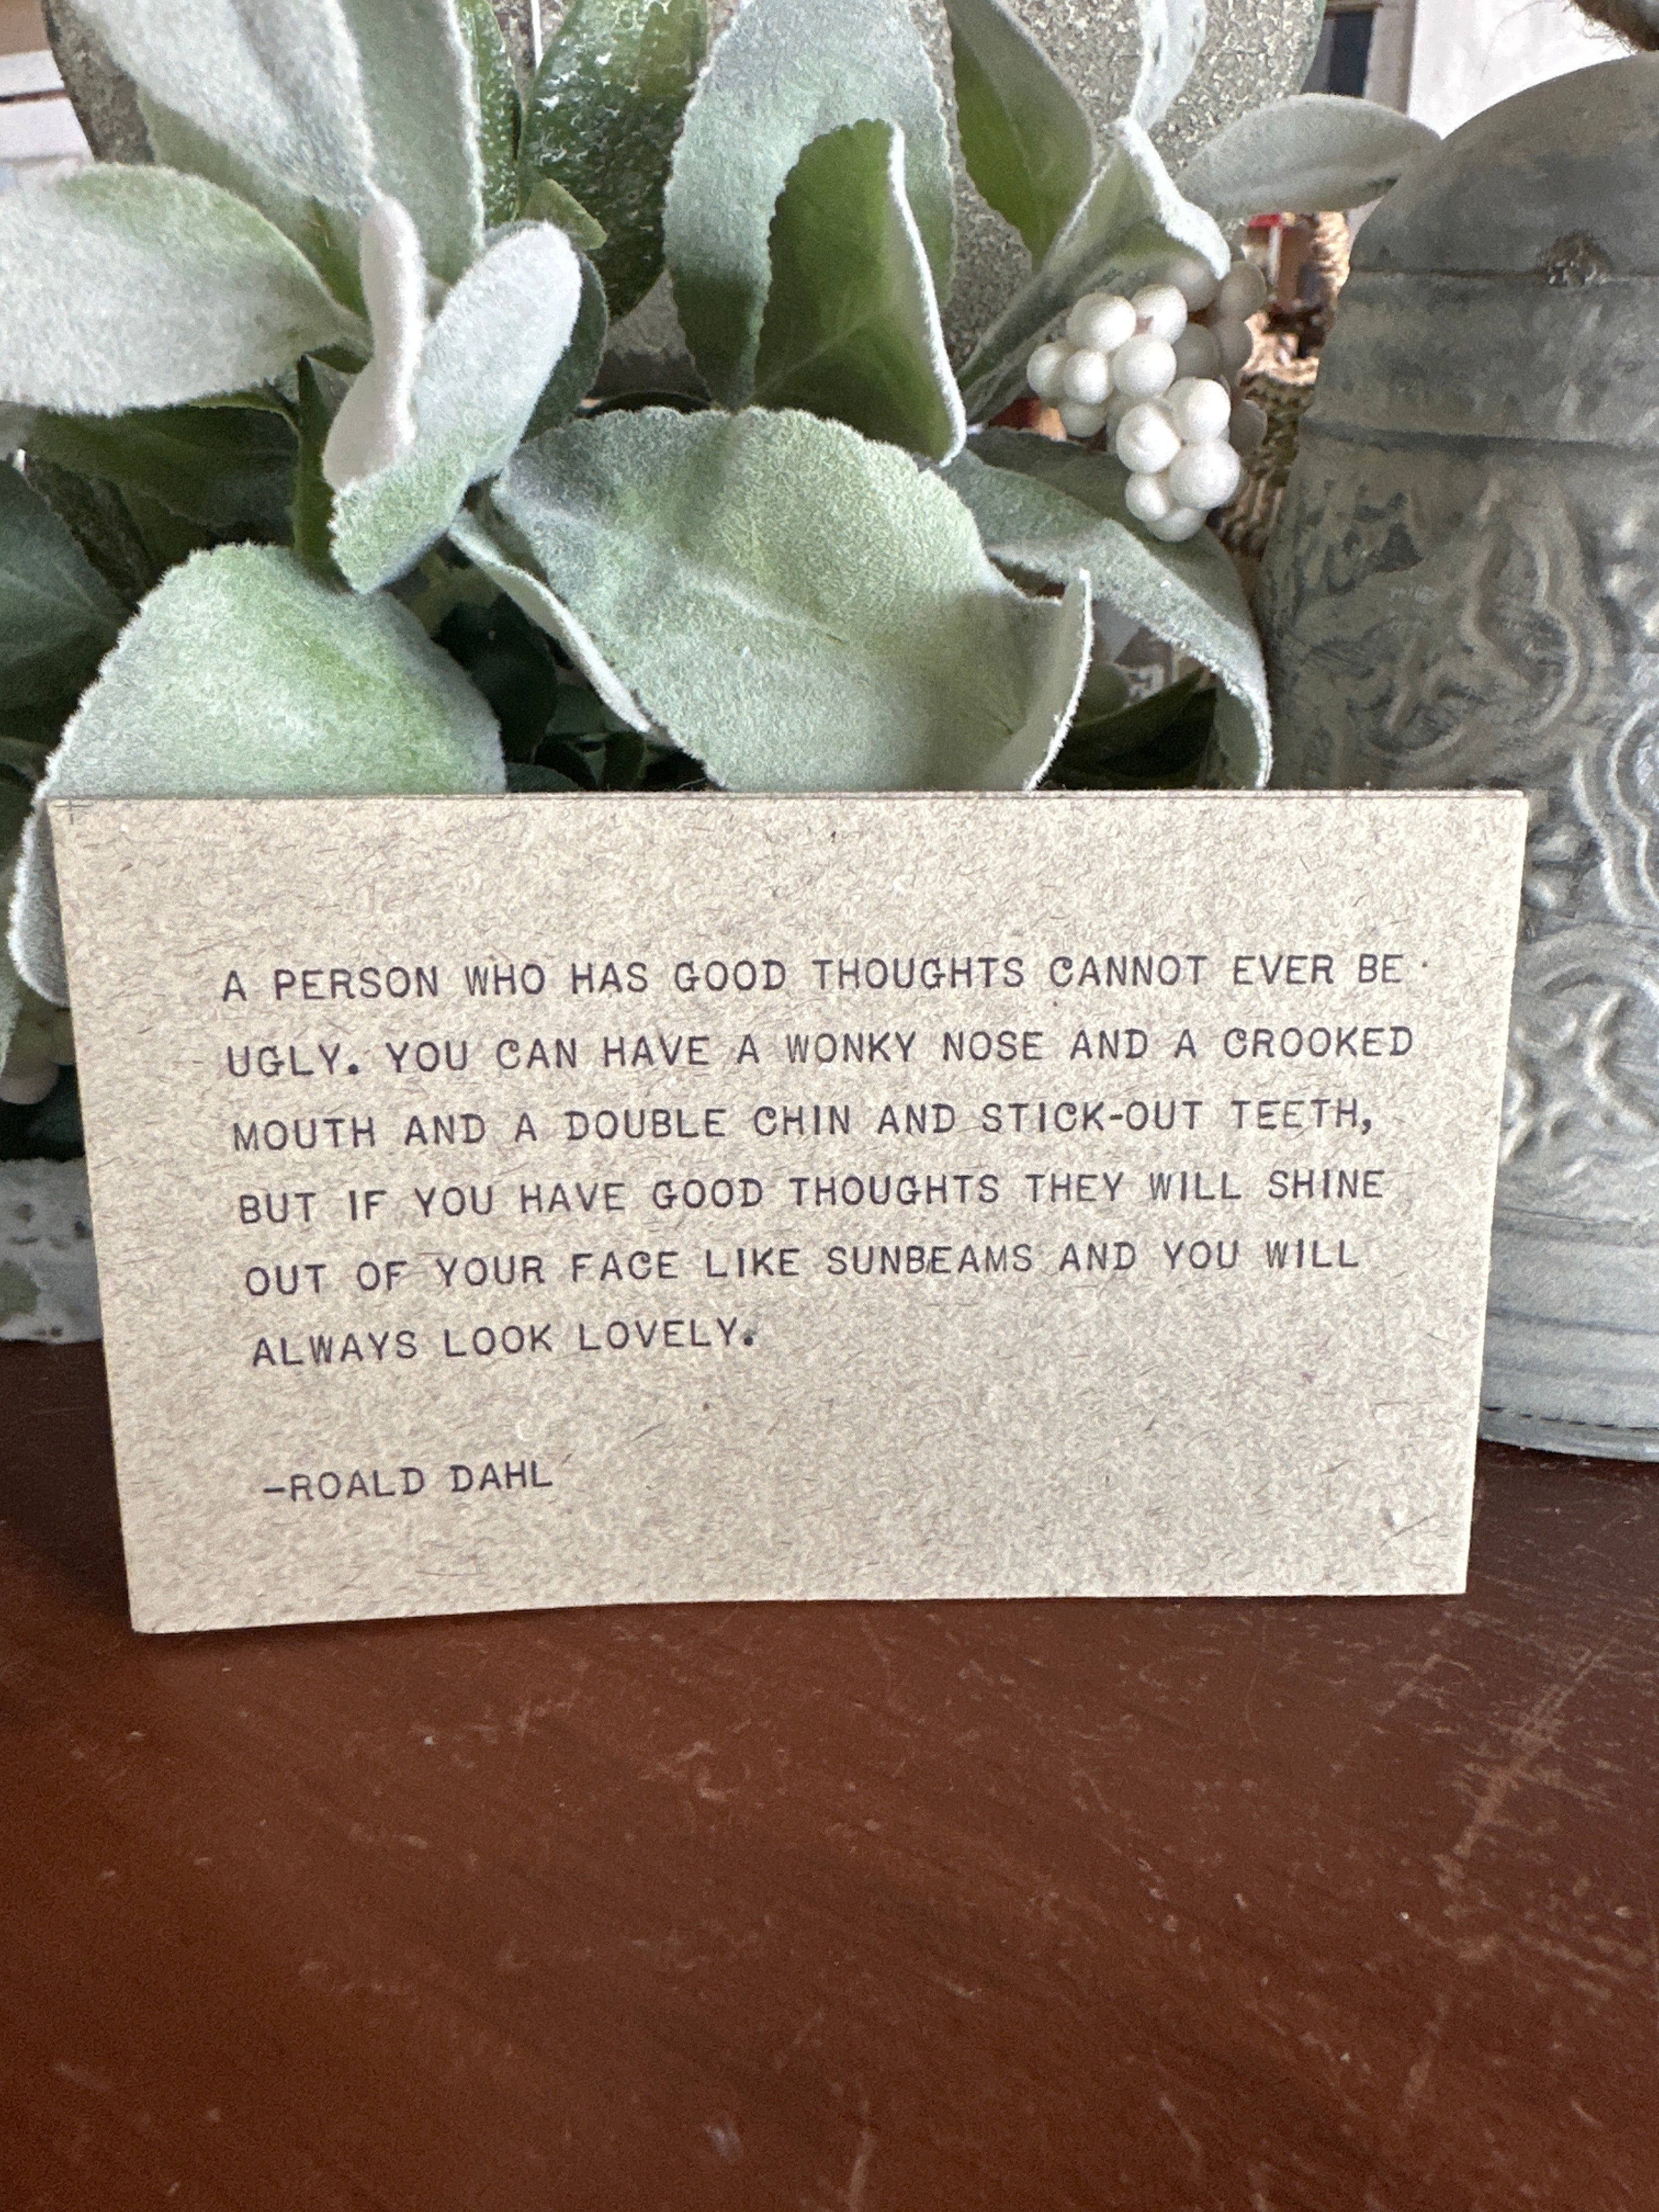 A PERSON WHO HAS GOOD THOUGHTS CANNOT EVER BE
UGLY. YOU CAN HAVE A WONKY NOSE AND A CROOKED
MOUTH AND A DOUBLE CHIN AND STICK-OUT TEETH,
BUT IF YOU HAVE GOOD THOUGHTS THEY WILL SHINE
OUT OF YOUR FACE LIKE SUNBEAMS AND YOU WILL
ALWAYS LOOK LOVELY.
-ROALD DAHL